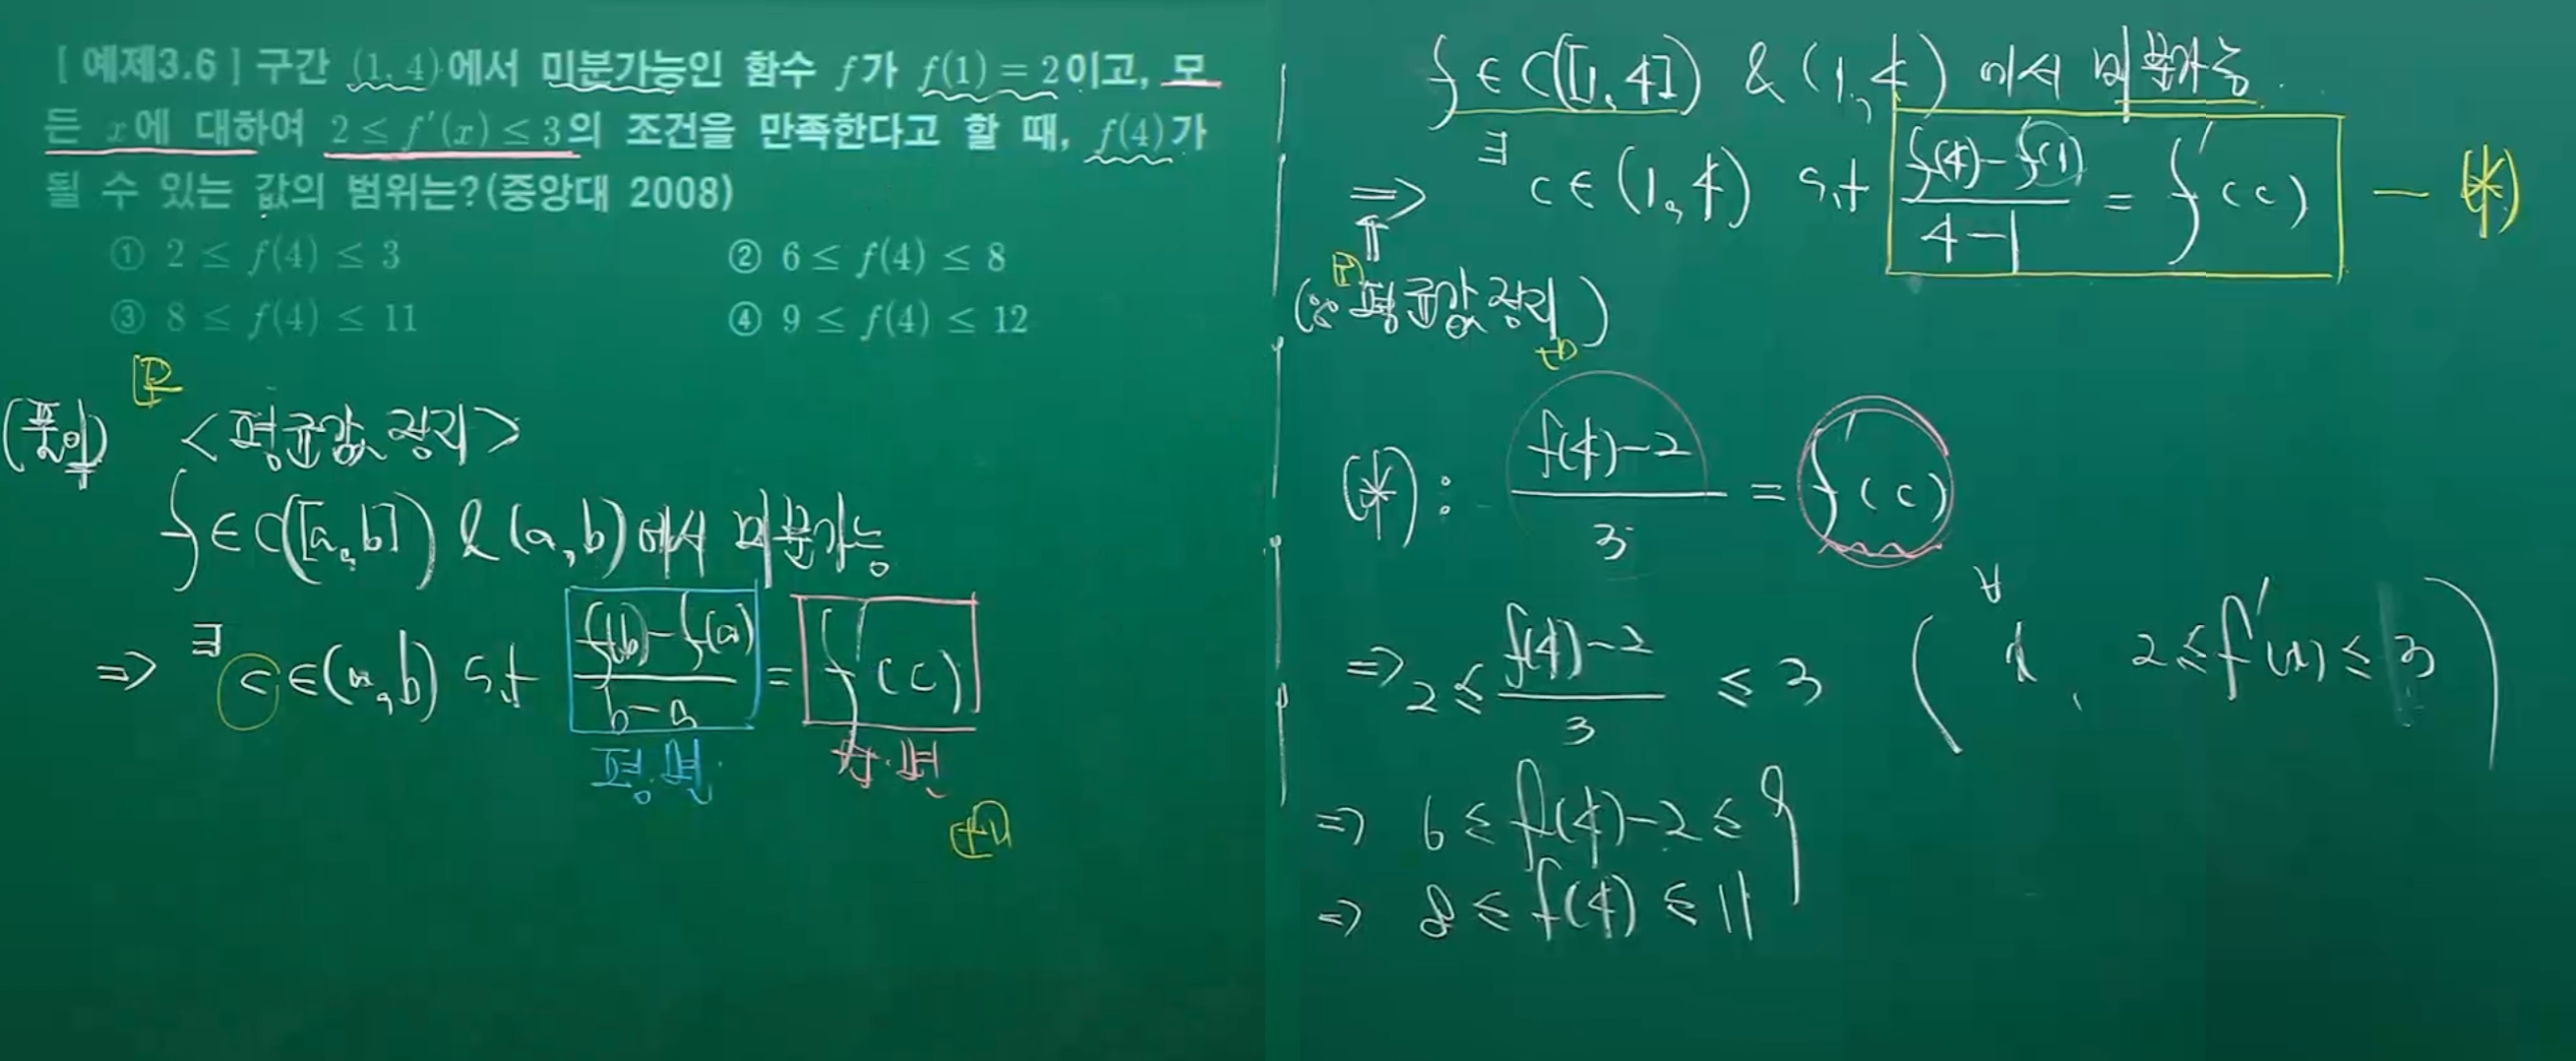 [ 예제3.6 ] 구간 (1, 4)에서 미분가능인 함수 f가 f(1) = 2이고, 모
든 x에 대하여 2 ≤ f′(x) ≤ 3의 조건을 만족한다고 할 때, f(4)가
될 수 있는 값의 범위는?(중앙대 2008)
① 2 ≤ f(4) ≤ 3 ② 6 ≤ f(4) ≤ 8
③ 8 ≤ f(4) ≤ 11 ④ 9 ≤ f(4) ≤ 12
(풀이) <평균값 정리>
f ∈ C([a, b]) & (a, b)에서 미분가능
⇒ ∃ c ∈ (a, b) s.t (f(b)-f(a))/(b-a) = f′(c)
평.변 순.변
f ∈ C([1, 4]) & (1, 4)에서 미분가능.
⇒ ∃ c ∈ (1, 4) s.t (f(4)-f(1))/(4-1) = f′(c) — (*)
(∵ 평균값 정리)
(*) : (f(4)-2)/3 = f′(c)
⇒ 2 ≤ (f(4)-2)/3 ≤ 3 (∀x, 2 ≤ f′(x) ≤ 3)
⇒ 6 ≤ f(4)-2 ≤ 9
⇒ 8 ≤ f(4) ≤ 11